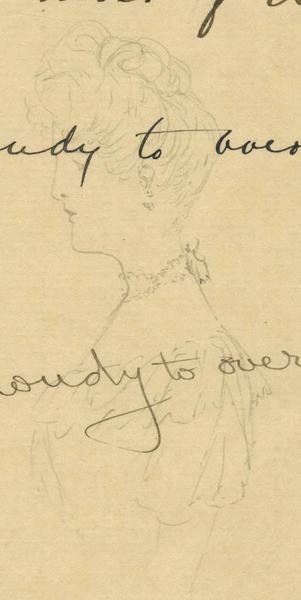 udy to over
oudy to over